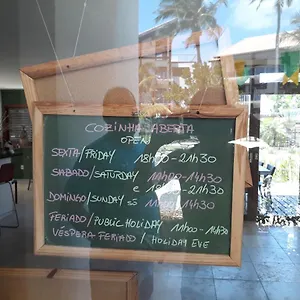 COZINHA ABERTA
OPEN
SEXTA/FRIDAY 18h00-21h30
SÁBADO/SATURDAY 11h00-14h30
e 18h00-21h30
DOMINGO/SUNDAY 11h00-14h30
FERIADO/PUBLIC HOLIDAY 11h00
VÉSPERA FERIADO/HOLIDAY EVE